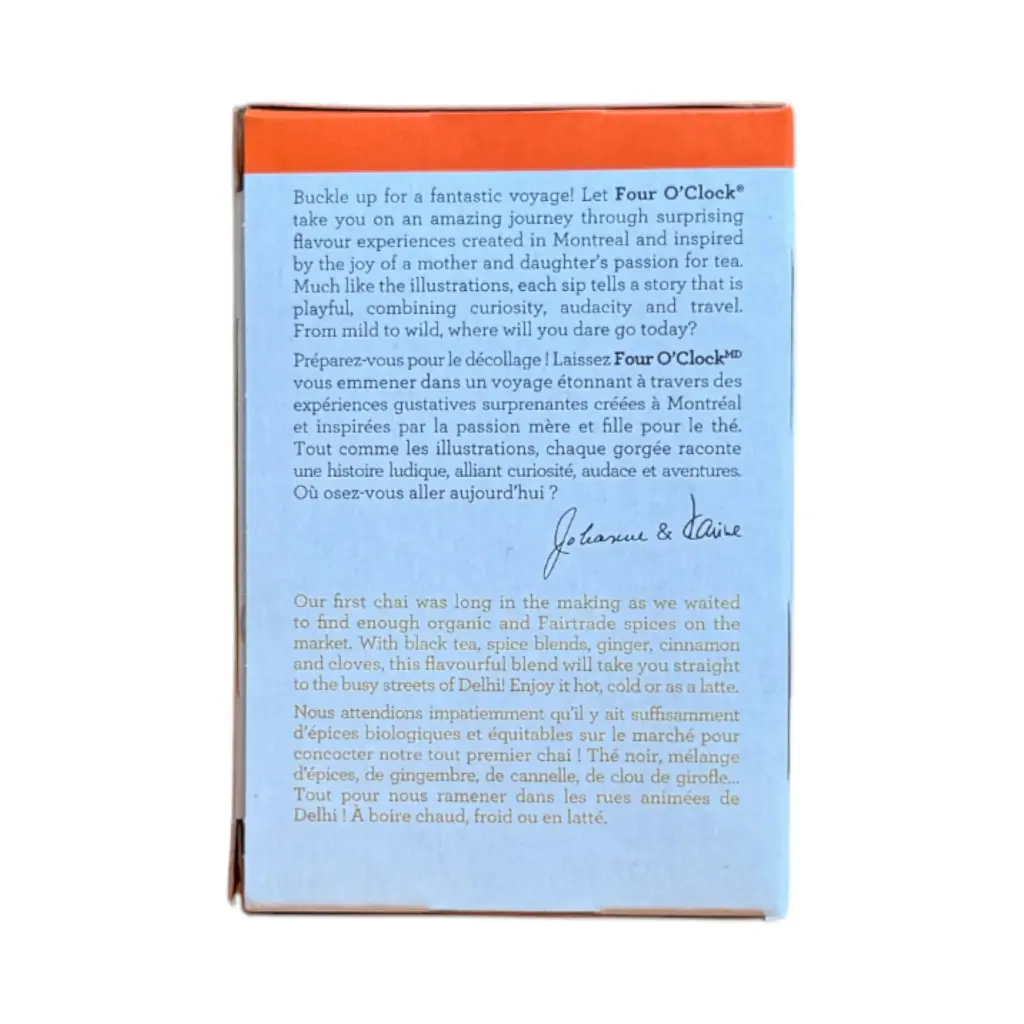 Buckle up for a fantastic voyage! Let Four O'Clock®
take you on an amazing journey through surprising
flavour experiences created in Montreal and inspired
by the joy of a mother and daughter's passion for tea.
Much like the illustrations, each sip tells a story that is
playful, combining curiosity, audacity and travel.
From mild to wild, where will you dare go today?
Préparez-vous pour le décollage ! Laissez Four O'Clockᴹᴰ
vous emmener dans un voyage étonnant à travers des
expériences gustatives surprenantes créées à Montréal
et inspirées par la passion mère et fille pour le thé.
Tout comme les illustrations, chaque gorgée raconte
une histoire ludique, alliant curiosité, audace et aventures.
Où osez-vous aller aujourd'hui ?
Johanne &
Our first chai was long in the making as we waited
to find enough organic and Fairtrade spices on the
market. With black tea, spice blends, ginger, cinnamon
and cloves, this flavourful blend will take you straight
to the busy streets of Delhi! Enjoy it hot, cold or as a latte.
Nous attendions impatiemment qu'il y ait suffisamment
d'épices biologiques et équitables sur le marché pour
concocter notre tout premier chai ! Thé noir, mélange
d'épices, de gingembre, de cannelle, de clou de girofle...
Tout pour nous ramener dans les rues animées de
Delhi ! À boire chaud, froid ou en latté.